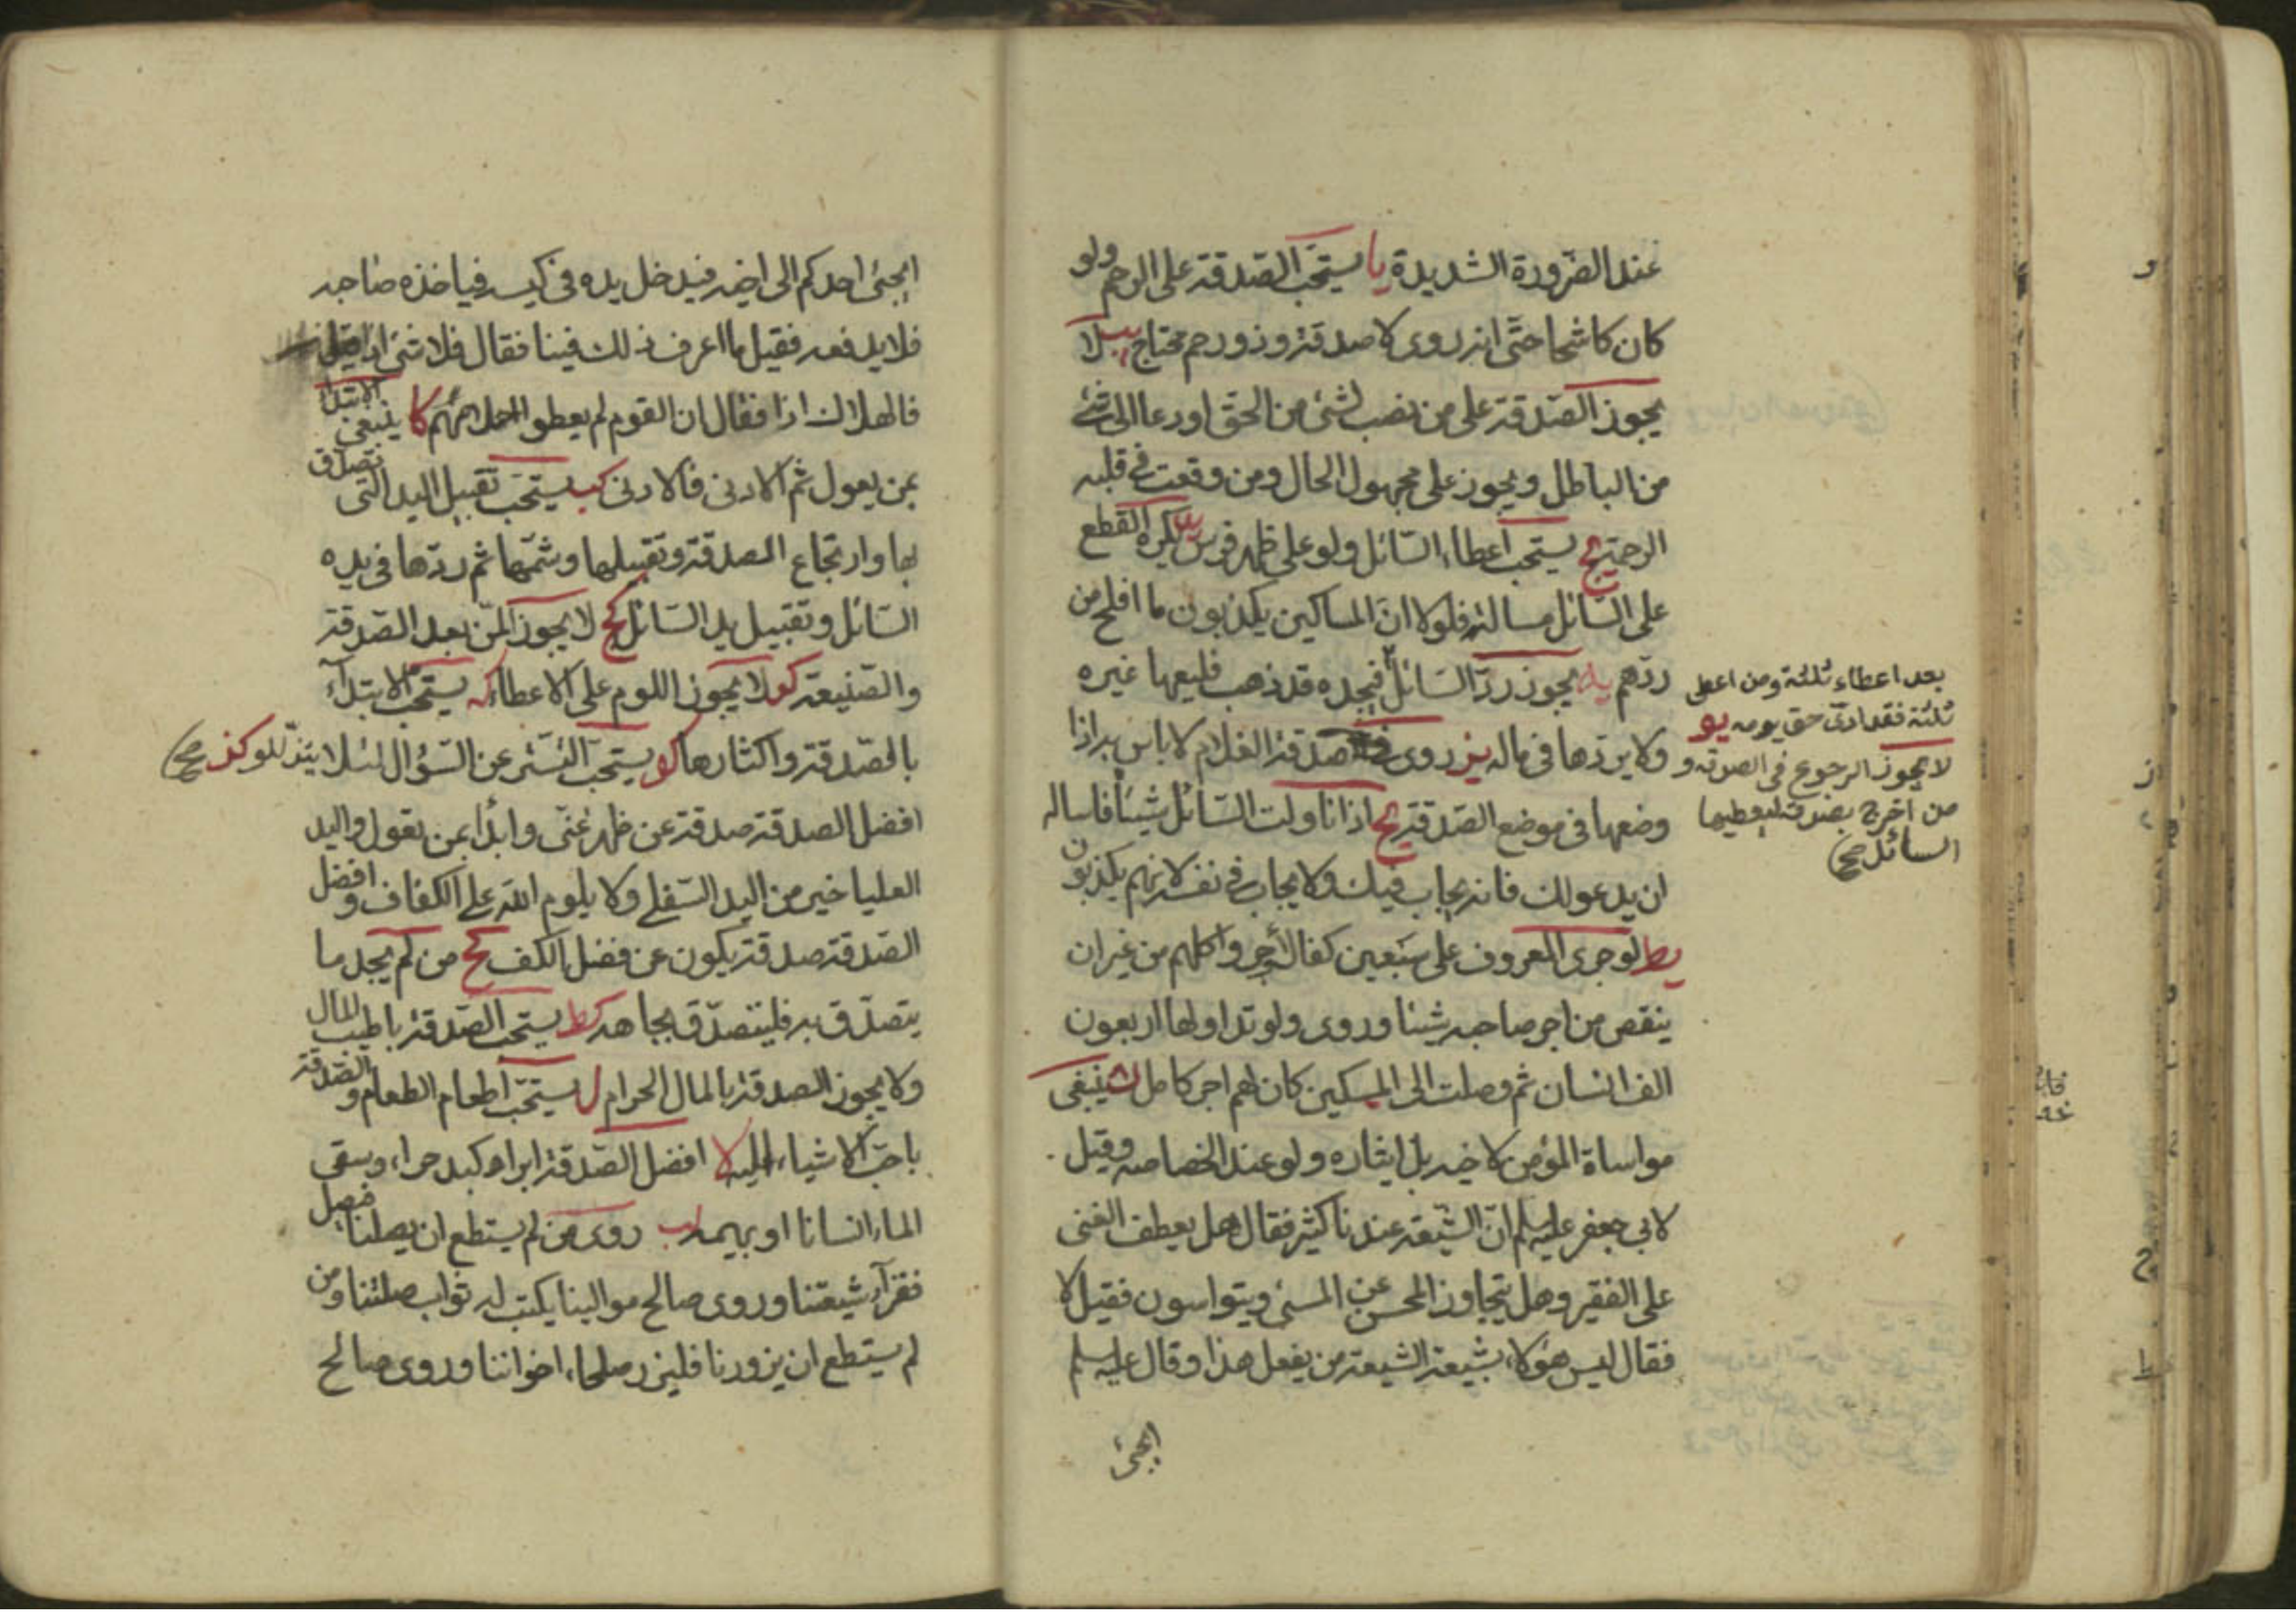 عند الضرورة الشديدة يا يستحب الصدقة على الرحم ولو
كان كاشحا حتى انه روى لا صدقة وذو رحم محتاج يب لا
يجوز الصدقة على من نصب لشئ من الحق او دعا الى شئ
من الباطل ويجوز على مجهول الحال ومن وقعت في قلبه
الرحمة يج يستحب اعطاء السائل ولو على ظهر فرس يد يكره القطع
على السائل مسالته فلولا ان المساكين يكذبون ما افلح من
ردهم يه يجوز رد السائل
بعد اعطاء ثلثة ومن اعطى
ثلثة فقد ادى حق يومه يو
لا يجوز الرجوع في الصدقة و
من اخرج بصدقة ليعطيها
السائل صح
فيجده قد ذهب فليعها غيره
ولا يردها في ماله يز روى في صدقة الغلام لا باس به اذا
وضعها في موضع الصدقة يح اذا ناولت السائل شيئا فاساله
ان يدعو لك فانه يجاب فيك ولا يجاب في نفسه لانهم يكذبون
يط لو جرى المعروف على سبعين كفا لأجروا كلهم من غير ان
ينقص من اجر صاحبه شيئا وروى ولو تداولها اربعون
الف انسان ثم وصلت الى المسكين كان لهم اجر كامل ك ينبغى
مواساة المؤمن لاخيه بل ايثاره ولو عند الخصاصه وقيل
لابي جعفر عليه السلم ان الشيعة عندنا كثير فقال هل يعطف الغنى
على الفقير وهل يتجاوز المحسن عن المسئ ويتواسون فقيل لا
فقال ليس هؤلاء بشيعة الشيعة من يفعل هذا وقال عليه السلم
ايجئ
ايجئ احدكم الى اخيه فيدخل يده في كيسه فياخذه صاحبه
فلا يدفعه فقيل ما اعرف ذلك فينا فقال فلا شئ اذا قيل
فالهلاك اذا فقال ان القوم لم يعطوا احلامهم كا ينبغى الابتداء
بمن يعول ثم الادنى فالادنى كب يستحب تقبيل اليد التى تصدق
بها وارتجاع الصدقة وتقبيلها وشمها ثم ردها في يده
السائل وتقبيل يد السائل كج لا يجوز المن بعد الصدقة
والصنيعة كد لا يجوز اللوم على الاعطاء كه يستحب الابتداء
بالصدقة واكثارها كو يستحب التستر عن السؤال لئلا يتذللوا كز صح
افضل الصدقة صدقة عن ظهر غنى وابدأ بمن تعول واليد
العليا خير من اليد السفلى ولا يلوم الله على الكفاف وافضل
الصدقة صدقة يكون عن فضل الكف كح من لم يجد ما
يتصدق به فليتصدق بجاهه كط يستحب الصدقة باطيب المال
ولا يجوز الصدقة بالمال الحرام ل يستحب اطعام الطعام والصدقة
باحب الاشياء اليه لا افضل الصدقة ابراد كبد حراء وسقى
الماء انسانا او بهيمة لب روى من لم يستطع ان يصلنا فليصل
فقراء شيعتنا وروى صالح موالينا يكتب له ثواب صلتنا ومن
لم يستطع ان يزورنا فليزر صلحاء اخواننا وروى صالح